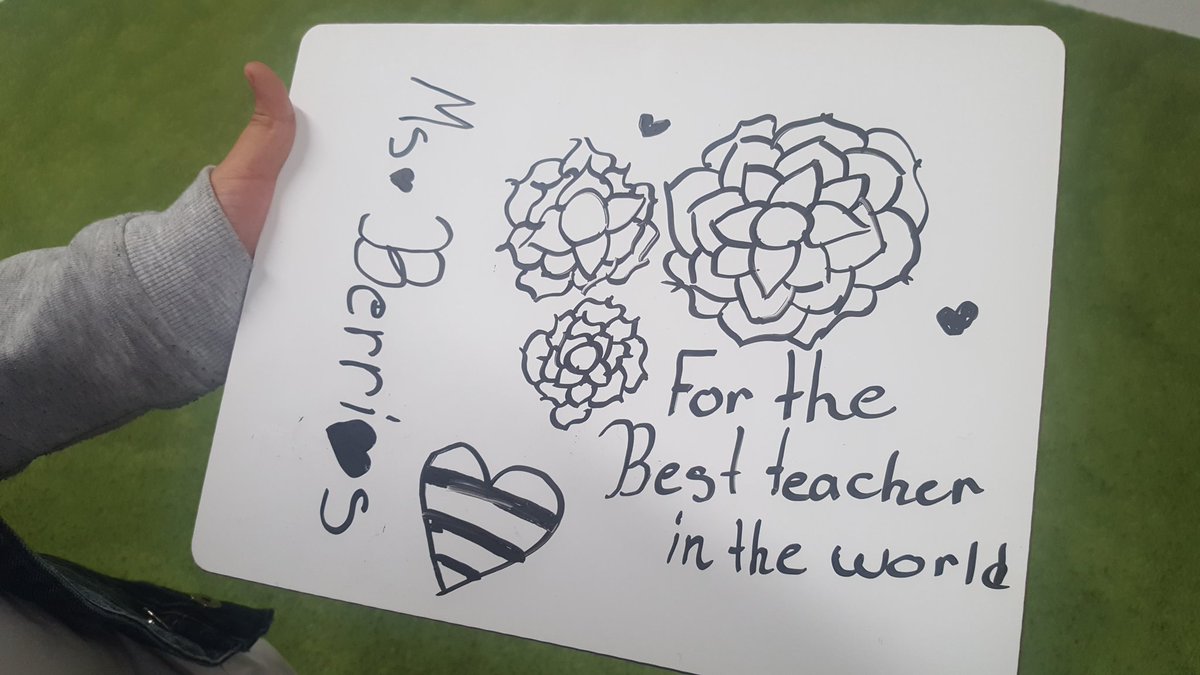 Ms. Berrios
For the
Best teacher
in the world